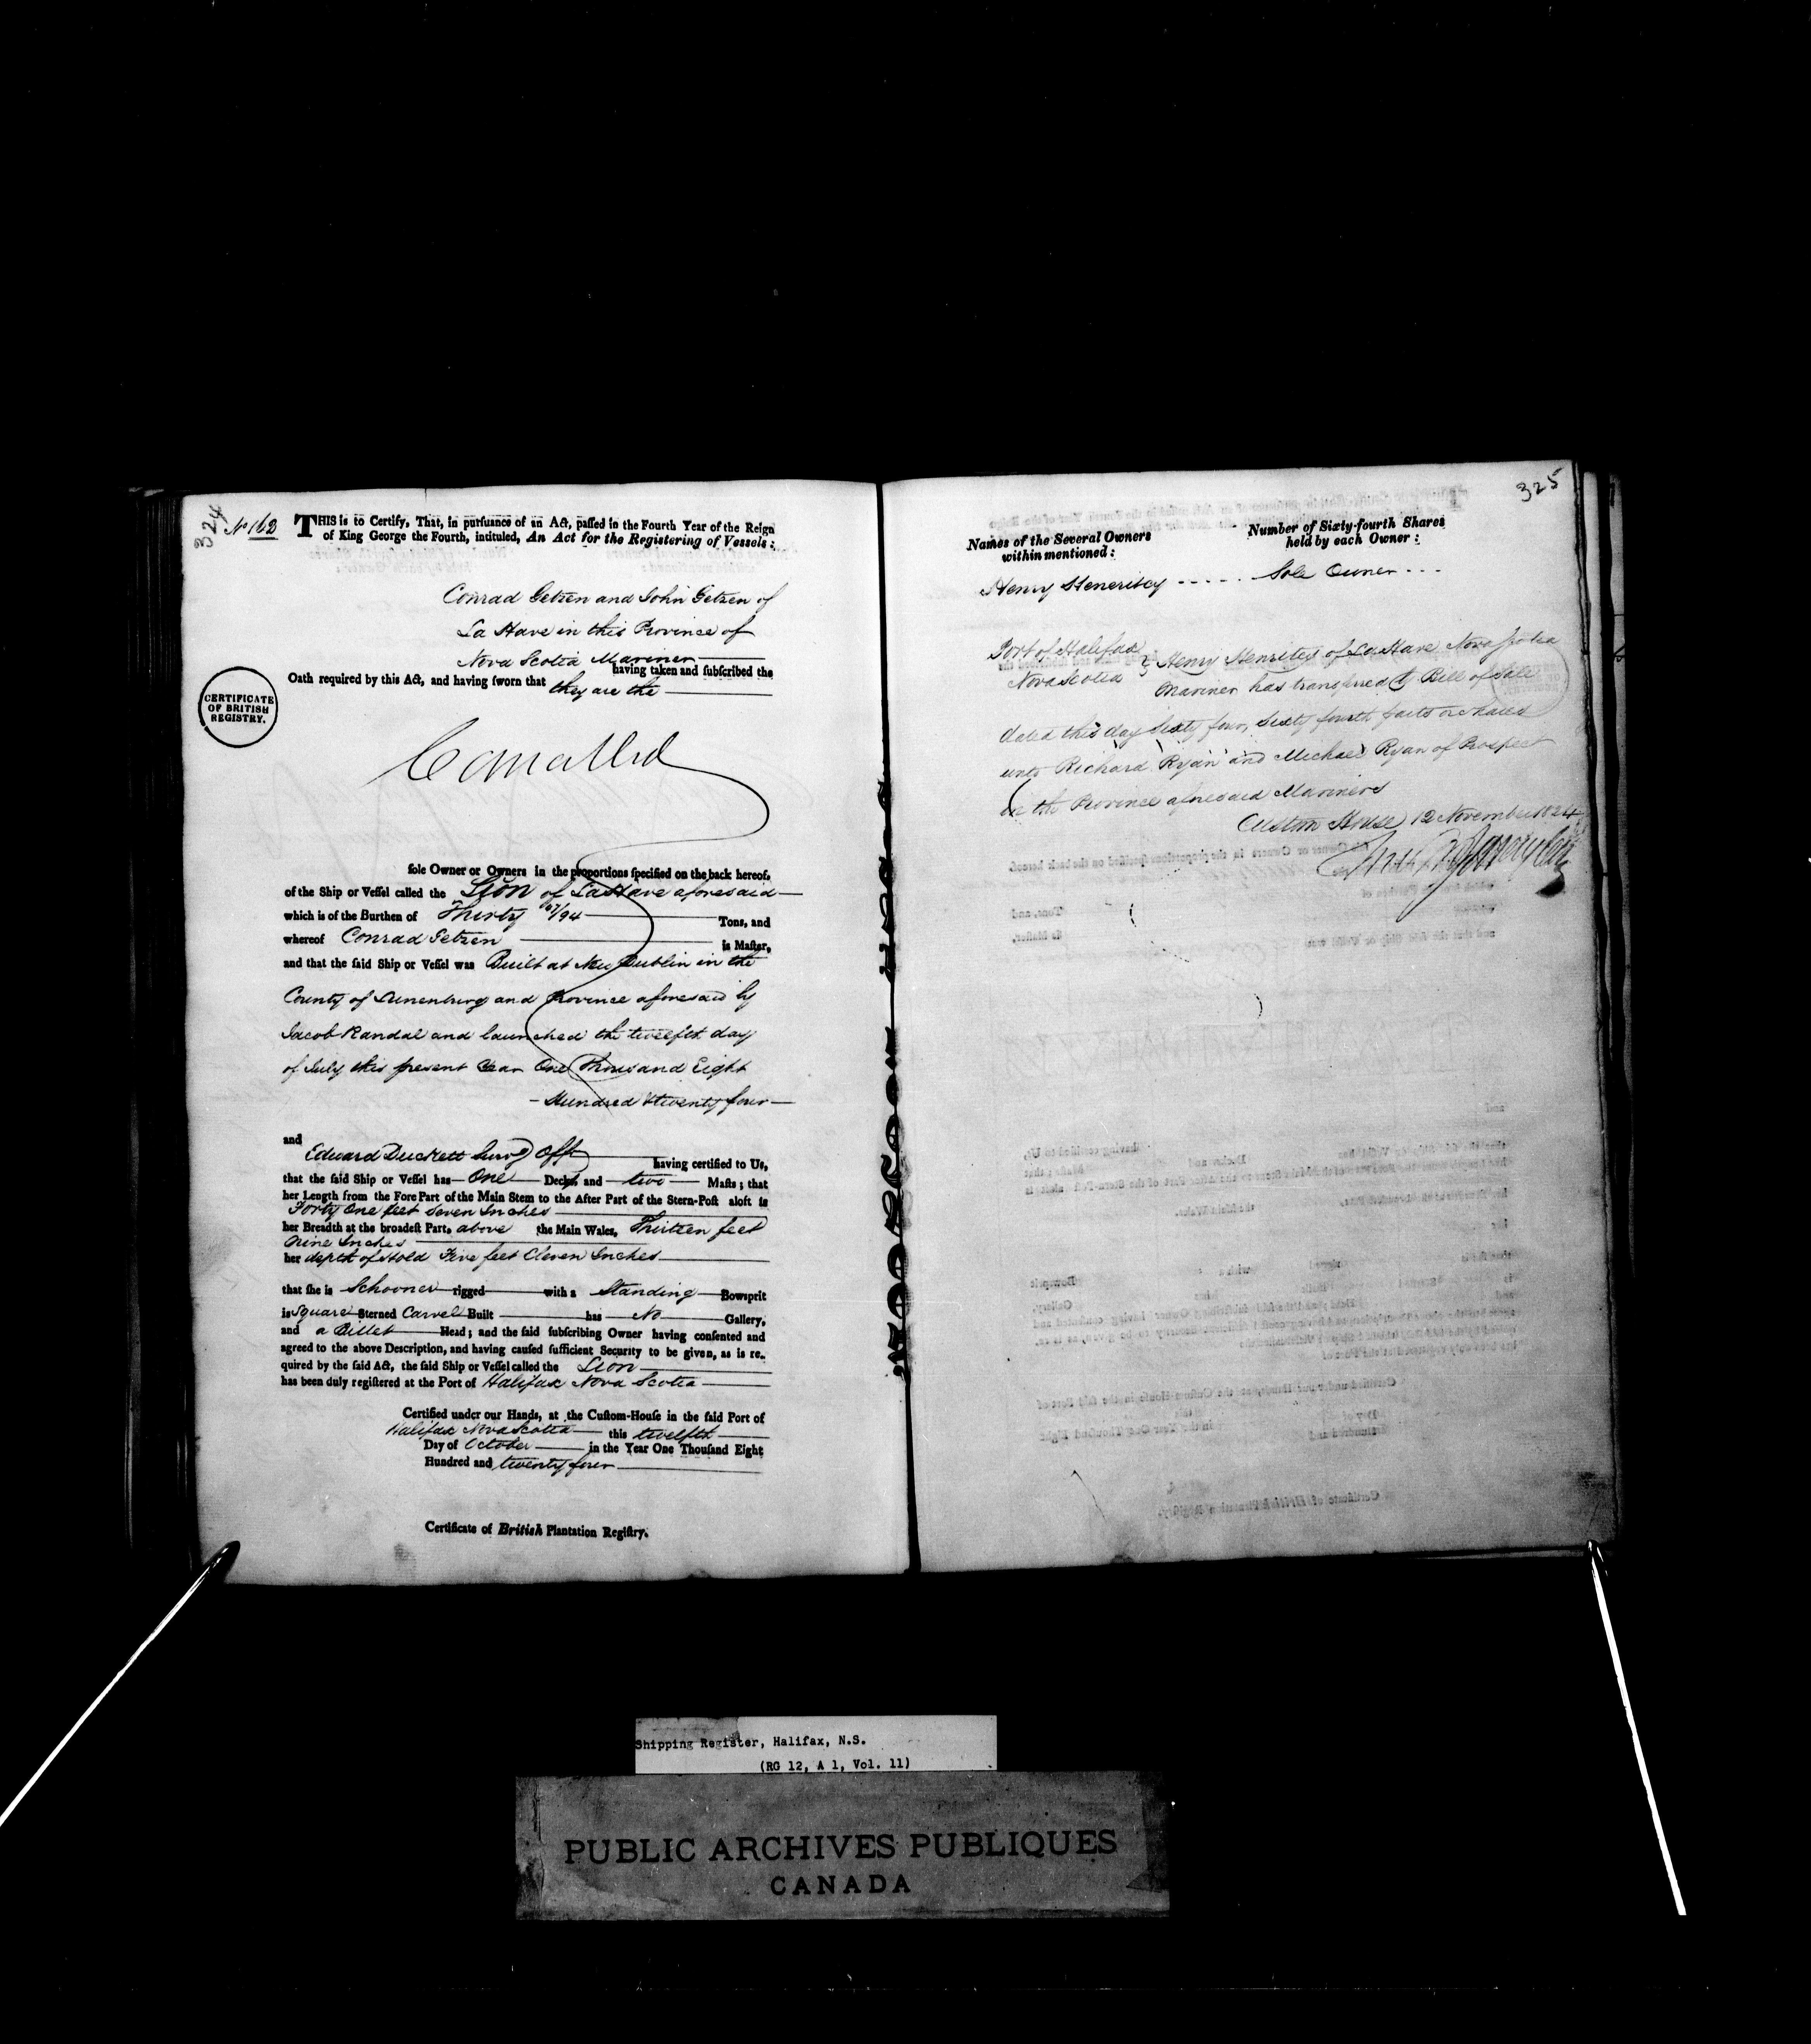 324
No 162
THIS is to Certify, That, in pursuance of an Act, passed in the Fourth Year of the Reign
of King George the Fourth, intituled, An Act for the Registering of Vessels:
Conrad Getzen and John Getzen of
La Have in this Province of
Nova Scotia Mariner
having taken and subscribed the
Oath required by this Act, and having sworn that they are the
CERTIFICATE
OF BRITISH
REGISTRY.
Cancelled
sole Owner or Owners in the proportions specified on the back hereof,
of the Ship or Vessel called the Lion of LaHave aforesaid
which is of the Burthen of Thirty 67/94 Tons, and
whereof Conrad Getzen is Master,
and that the said Ship or Vessel was Built at New Dublin in the
County of Lunenburg and Province aforesaid by
Jacob Randal and launched the twelfth day
of July this present Year One Thousand Eight
Hundred & twenty four
and
Edward Duckett Survg Offr having certified to Us,
that the said Ship or Vessel has One Deck, and two Masts; that
her Length from the Fore Part of the Main Stem to the After Part of the Stern-Post aloft is
Forty One feet Seven Inches
her Breadth at the broadest Part, above the Main Wales, Thirteen feet
Nine Inches
her depth of Hold Five feet Eleven Inches
that she is Schooner rigged with a Standing Bowsprit
is Square Sterned Carvel Built has No Gallery,
and a Billet Head; and the said subscribing Owner having consented and
agreed to the above Description, and having caused sufficient Security to be given, as is re-
quired by the said Act, the said Ship or Vessel called the Lion
has been duly registered at the Port of Halifax Nova Scotia
Certified under our Hands, at the Custom-House in the said Port of
Halifax Nova Scotia this twelfth
Day of October in the Year One Thousand Eight
Hundred and twenty four
Certificate of British Plantation Registry.
325
Names of the Several Owners
within mentioned:
Number of Sixty-fourth Shares
held by each Owner:
Henry Henerisey ..... Sole Owner ...
Port of Halifax
Nova Scotia } Henry of La Have Nova Scotia
Mariner has transferred by Bill of Sale
dated this day Sixty four, Sixty fourth parts or shares
unto Richard Ryan and Michael Ryan of Prospect
in the Province aforesaid Mariners
Custom House 12 November 1824
Shipping Register, Halifax, N.S.
(RG 12, A 1, Vol. 11)
PUBLIC ARCHIVES PUBLIQUES
CANADA